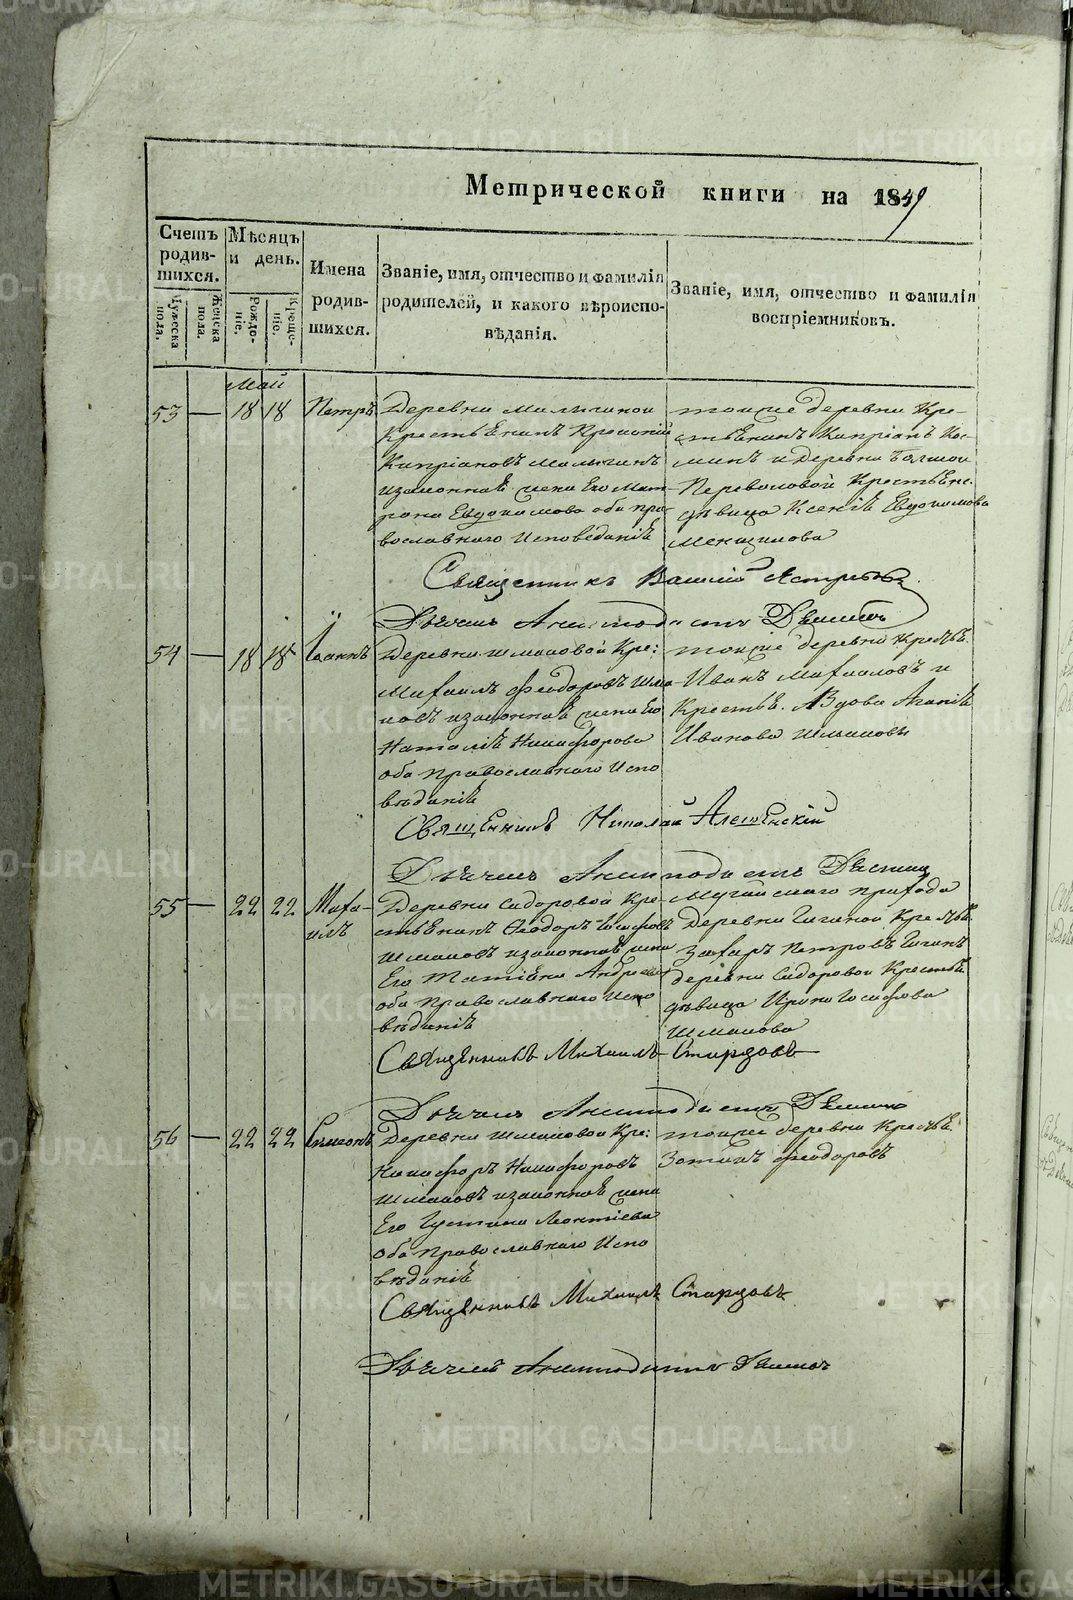 Метрической книги на 1849
Счетъ родив-шихся.
Мужеска пола.
Женска пола.
Мѣсяцъ и день.
Рожде-ніе.
Креще-ніе.
Имена родив-шихся.
Званіе, имя, отчество и фамилія
родителей, и какого вѣроиспо-
вѣданія.
Званіе, имя, отчество и фамилія
воспріемниковъ.
Май
53 — 18 18 Петръ
Деревни Малыгиной
Крестьянинъ
Кипріановъ Малыгинъ
изаконная жена Его Мат-
рона Евдокимова оба пра-
вославнаго Исповеданія
тойже деревни Кре-
стьянинъ Кипріанъ Кос-
минъ и деревни
Переволовой Крестьянс.
дѣвица Ксенія Евдокимова
Меншикова
Священникъ Василій
Дьячекъ
54 — 18 18 Іоаннъ
Деревни Шмаковой Кре:
Михаилъ Феодоровъ Шма-
ковъ изаконная жена Его
Наталія Никифорова
оба православнаго Испо
вѣданія
тойже деревни Крестья.
Иванъ Михайловъ и
Крестья. Вдова Агапія
Иванова Шмакова
Священникъ Николай
Дьячекъ
55 — 22 22 Миха-
илъ
Деревни Сидоровой Кре-
стьянинъ Феодоръ Іосифовъ
Шмаковъ изаконная жена
Его Татіяна Андреева
оба Православнаго Испо
вѣданія
прихода
Деревни Гигиной Крестья.
Захаръ Петровъ Гигинъ
деревни Сидоровой Крестья.
дѣвица Ирина Іосифова
Шмакова
Священникъ Михаилъ Старцовъ
Дьячекъ
56 — 22 22 Симеонъ
Деревни Шмаковой Кре:
Никифоръ Никифоровъ
Шмаковъ изаконная жена
Его Густина Леонтіева
оба православнаго Испо
вѣданія
тойже деревни Крестья.
Зотикъ Феодоровъ
Священникъ Михаилъ Старцовъ
Дьячекъ
METRIKI.GASO-URAL.RU